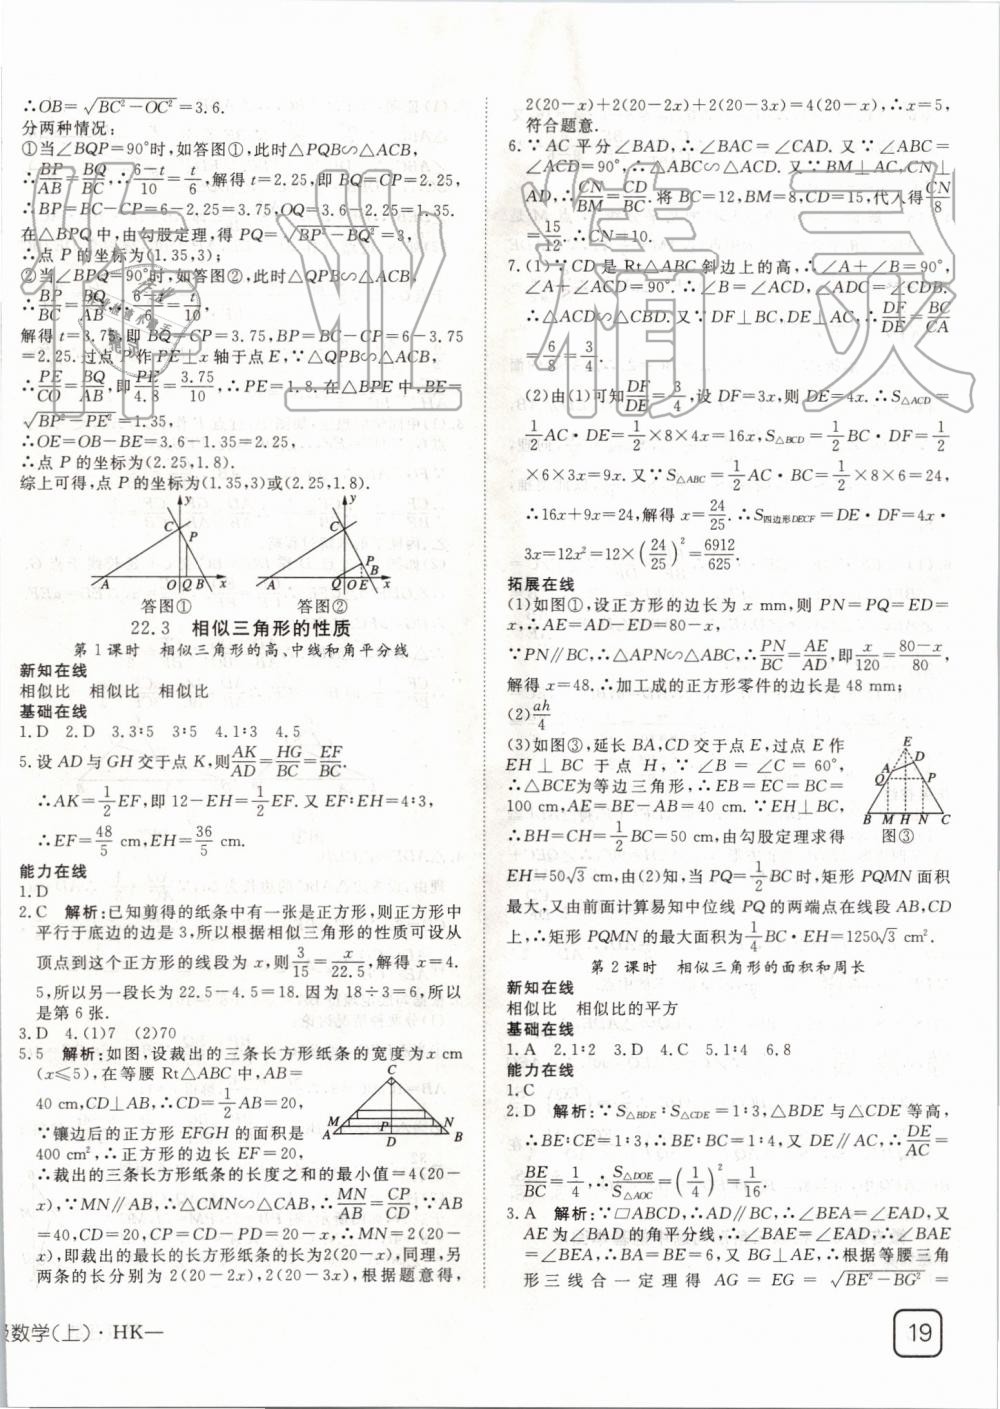 ∴OB=√(BC²-OC²)=3.6.
分两种情况:
①当∠BQP=90°时,如答图①,此时△PQB∽△ACB,
∴BP/AB=BQ/BC,∴(6-t)/10=t/6,解得t=2.25,即BQ=CP=2.25,
∴BP=BC-CP=6-2.25=3.75,OQ=3.6-2.25=1.35.
在△BPQ中,由勾股定理,得PQ=√(BP²-BQ²)=3,
∴点P的坐标为(1.35,3);
②当∠BPQ=90°时,如答图②,此时△QPB∽△ACB,
∴BP/BC=BQ/AB,∴(6-t)/6=t/10,
解得t=3.75,即BQ=CP=3.75,BP=BC-CP=6-3.75
=2.25.过点P作PE⊥x轴于点E,∵△QPB∽△ACB,
∴PE/CO=BQ/AB,即PE/4.8=3.75/10,∴PE=1.8.在△BPE中,BE=
√(BP²-PE²)=1.35,
∴OE=OB-BE=3.6-1.35=2.25,
∴点P的坐标为(2.25,1.8).
综上可得,点P的坐标为(1.35,3)或(2.25,1.8).
y C P A O Q B x
y C P A Q O E B x
答图① 答图②
22.3 相似三角形的性质
第1课时 相似三角形的高、中线和角平分线
新知在线
相似比 相似比 相似比
基础在线
1.D 2.D 3.3∶5 3∶5 4.1∶3 4.5
5.设AD与GH交于点K,则AK/AD=HG/BC=EF/BC.
∴AK=1/2EF,即12-EH=1/2EF.又EF∶EH=4∶3,
∴EF=48/5 cm,EH=36/5 cm.
能力在线
1.D
2.C 解析:已知剪得的纸条中有一张是正方形,则正方形中
平行于底边的边是3,所以根据相似三角形的性质可设从
顶点到这个正方形的线段为x,则3/15=x/22.5,解得x=4.
5,所以另一段长为22.5-4.5=18.因为18÷3=6,所以
是第6张.
3.D 4.(1)7 (2)70
5.5 解析:如图,设裁出的三条长方形纸条的宽度为x cm
(x≤5),在等腰Rt△ABC中,AB=
40 cm,CD⊥AB,∴CD=1/2AB=20,
∵镶边后的正方形EFGH的面积是
400 cm²,∴正方形的边长EF=20,
C M P N A D B
∴裁出的三条长方形纸条的长度之和的最小值=4(20-
x),∵MN∥AB,∴△CMN∽△CAB,∴MN/AB=CP/CD,∵AB
=40,CD=20,CP=CD-PD=20-x,∴MN=2(20-
x),即裁出的最长的长方形纸条的长为2(20-x),同理,另
两条的长分别为2(20-2x),2(20-3x),根据题意得,
级数学(上)·HK—
2(20-x)+2(20-2x)+2(20-3x)=4(20-x),∴x=5,
符合题意.
6.∵AC平分∠BAD,∴∠BAC=∠CAD.又∵∠ABC=
∠ACD=90°,∴△ABC∽△ACD.又∵BM⊥AC,CN⊥
AD,∴CN/BM=CD/BC.将BC=12,BM=8,CD=15,代入得CN/8
=15/12.∴CN=10.
7.(1)∵CD是Rt△ABC斜边上的高,∴∠A+∠B=90°,
∠A+∠ACD=90°.∴∠B=∠ACD,∠ADC=∠CDB.
∴△ACD∽△CBD.又∵DF⊥BC,DE⊥AC,∴DF/DE=BC/CA
=6/8=3/4.
(2)由(1)可知DF/DE=3/4,设DF=3x,则DE=4x.∴S△ACD=
1/2AC·DE=1/2×8×4x=16x,S△BCD=1/2BC·DF=1/2
×6×3x=9x.又∵S△ABC=1/2AC·BC=1/2×8×6=24,
∴16x+9x=24,解得x=24/25.∴S四边形DECF=DE·DF=4x·
3x=12x²=12×(24/25)²=6912/625.
拓展在线
(1)如图①,设正方形的边长为x mm,则PN=PQ=ED=
x,∴AE=AD-ED=80-x,
∵PN∥BC,∴△APN∽△ABC,∴PN/BC=AE/AD,即x/120=(80-x)/80,
解得x=48.∴加工成的正方形零件的边长是48 mm;
(2)ah/4
(3)如图③,延长BA,CD交于点E,过点E作
EH⊥BC于点H,∵∠B=∠C=60°,
∴△BCE为等边三角形,∴EB=EC=BC=
100 cm,AE=BE-AB=40 cm.∵EH⊥BC,
∴BH=CH=1/2BC=50 cm,由勾股定理求得
E A D Q P B M H N C
图③
EH=50√3 cm,由(2)知,当PQ=1/2BC时,矩形PQMN面积
最大,又由前面计算易知中位线PQ的两端点在线段AB,CD
上,∴矩形PQMN的最大面积为1/4BC·EH=1250√3 cm².
第2课时 相似三角形的面积和周长
新知在线
相似比 相似比的平方
基础在线
1.A 2.1∶2 3.D 4.C 5.1∶4 6.8
能力在线
1.C
2.D 解析:∵S△BDE∶S△CDE=1∶3,△BDE与△CDE等高,
∴BE∶CE=1∶3,∴BE∶BC=1∶4,又DE∥AC,∴DE/AC=
BE/BC=1/4,∴S△DOE/S△AOC=(1/4)²=1/16.
3.A 解析:∵□ABCD,∴AD∥BC,∴∠BEA=∠EAD,又
AE为∠BAD的角平分线,∴∠BAE=∠EAD,∴∠BAE
=∠BEA,∴BA=BE=6,又BG⊥AE,∴根据等腰三角
形三线合一定理得AG=EG=√(BE²-BG²)=
19
作业精灵